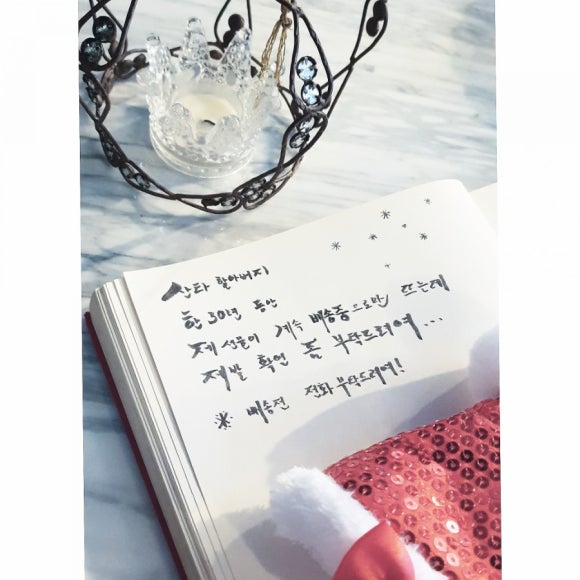 산타 할아버지
한 30년 동안
제 선물이 계속 배송중으로만 뜨는데
제발 확인 좀 부탁드려여...
※ 배송전 전화부탁드려여!